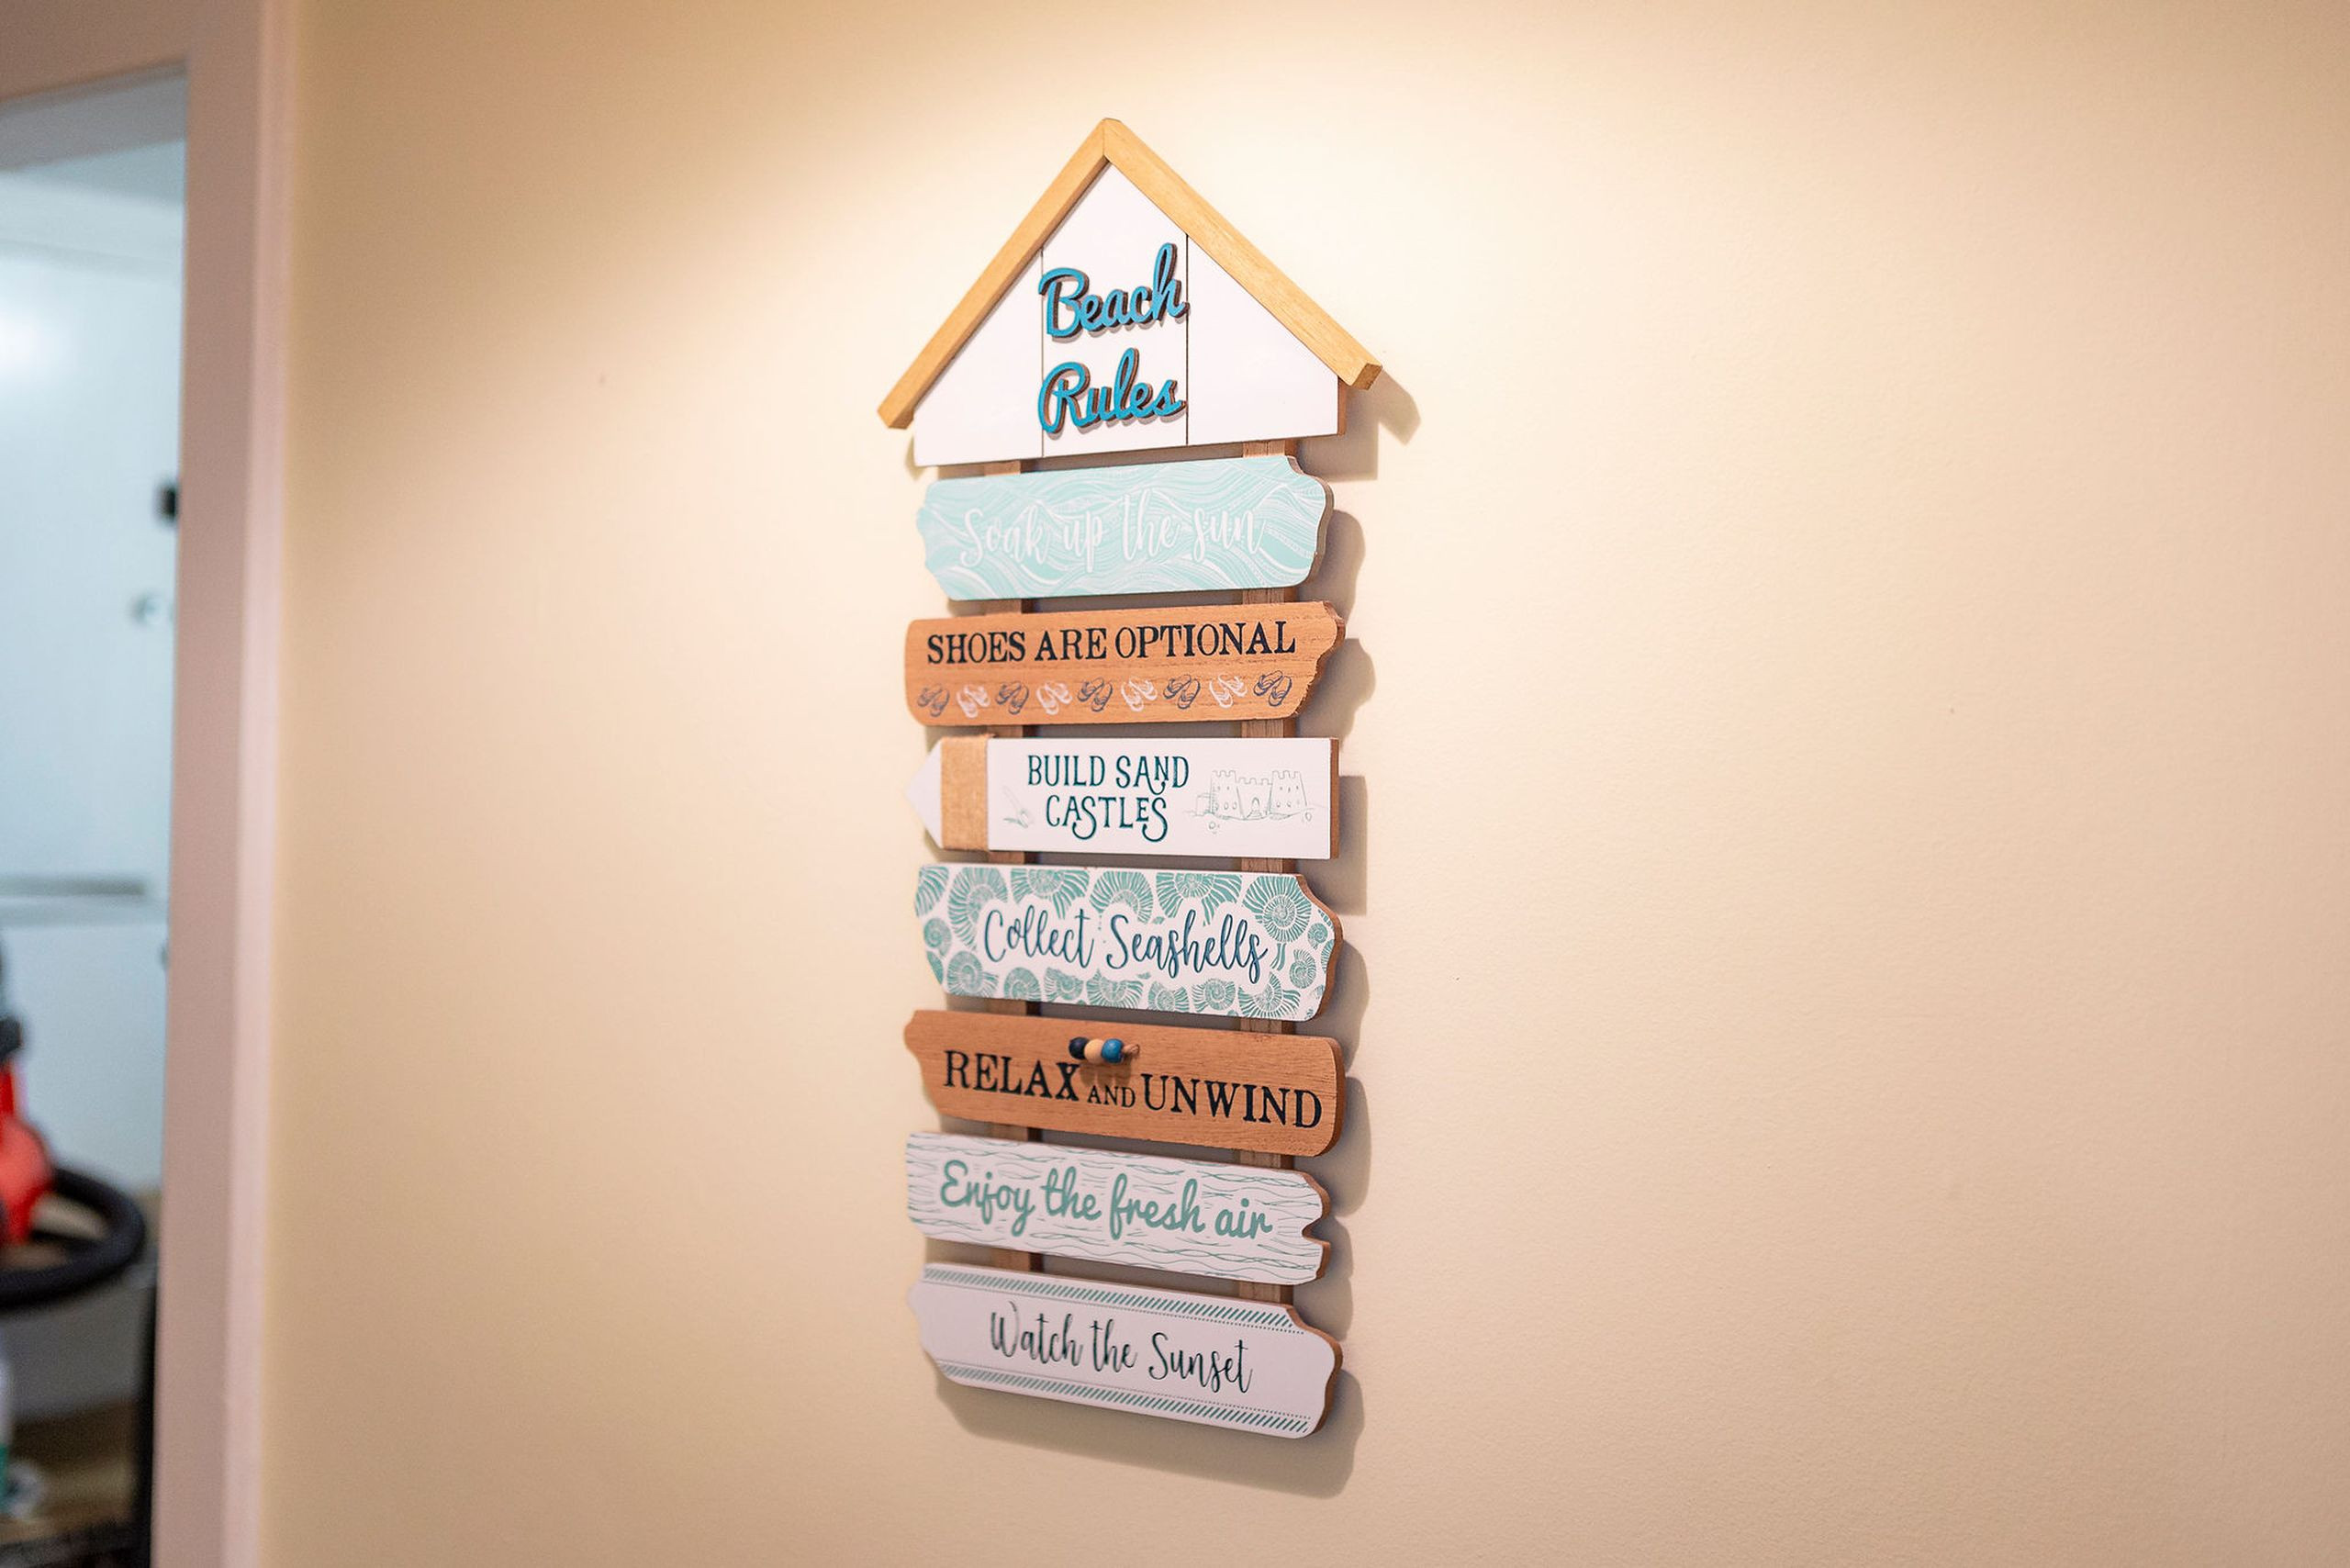 Beach
Rules
Soak up the sun
SHOES ARE OPTIONAL
BUILD SAND
CASTLES
Collect Seashells
RELAX AND UNWIND
Enjoy the fresh air
Watch the Sunset